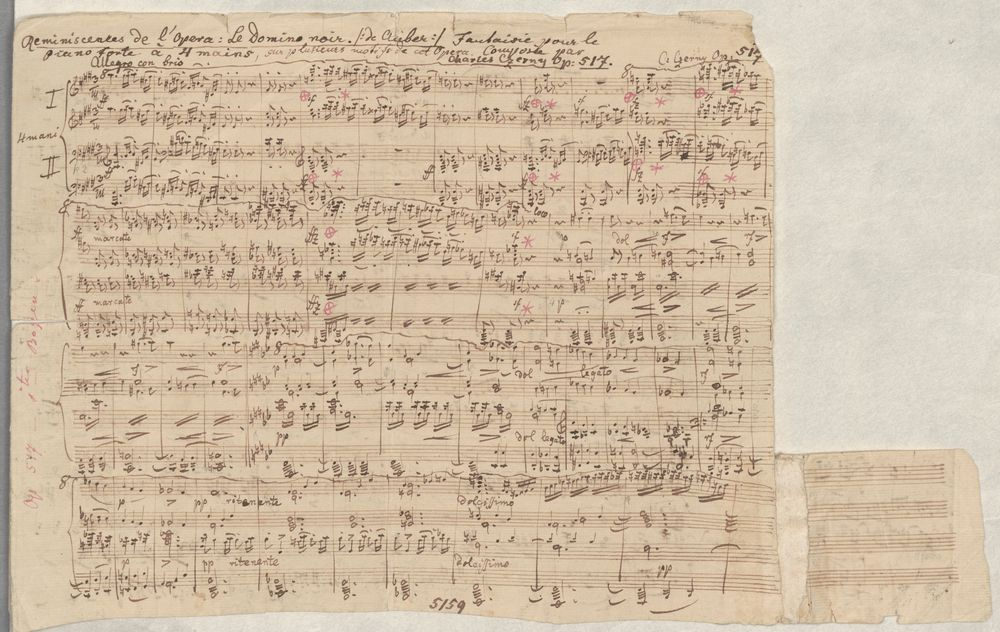 Reminiscentes de l'Opera: Le Domino noir. /: de Auber :/ Fantaisie pour le
piano forte à 4 mains, sur plusieurs motifs de cet Opera, Composée par
Allegro con brio
Charles Czerny Op: 517.
C: Czerny Op: 517
I
4 mani
II
8
marcato
loco
p
dol
marcato
sf
p
dol
legato
pp
dol legato
8
p
pp ritenente
dolcissimo
p
pp ritenente
dolcissimo
pp
5159
Op 517 1ter Bogen